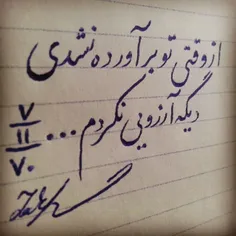 از وقتی تو برآورده نشدی
دیگه آرزویی نکردم...
۷
۱۱
۷۰